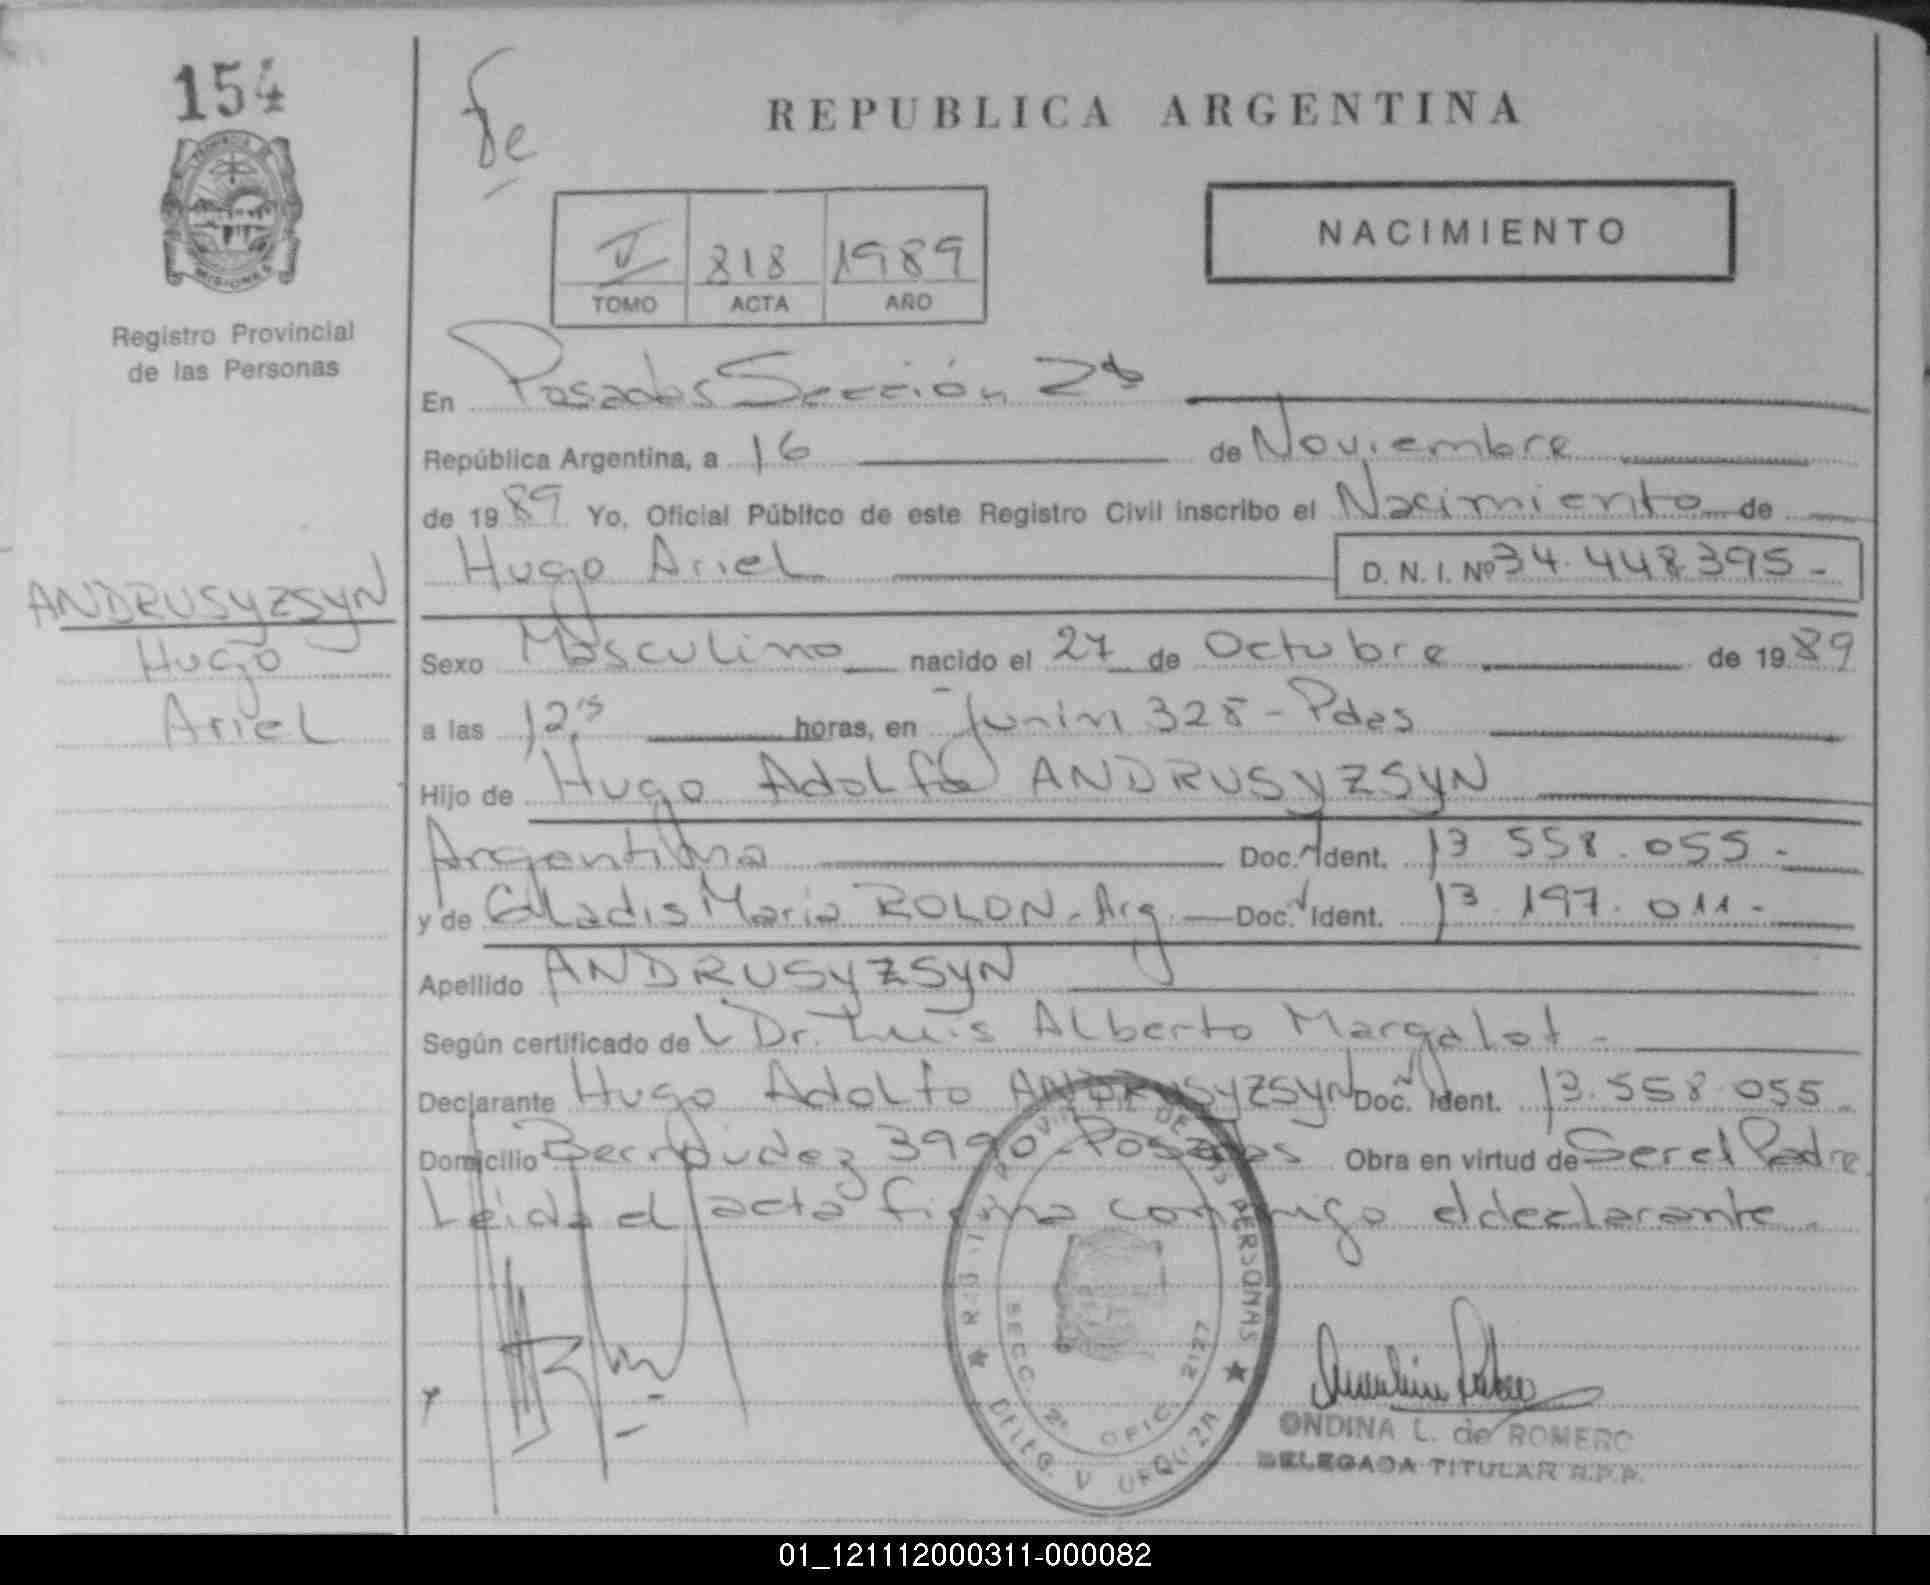 154
PROVINCIA DE
MISIONES
Registro Provincial
de las Personas
ANDRUSYZSYN
Hugo
Ariel
REPUBLICA ARGENTINA
NACIMIENTO
V 818 1989
TOMO ACTA AÑO
En Posadas Sección 2ª
República Argentina, a 16 de Noviembre
de 1989 Yo, Oficial Público de este Registro Civil inscribo el Nacimiento de
Hugo Ariel D. N. I. Nº 34.448.395-
Sexo Masculino nacido el 27 de Octubre de 1989
a las 12 horas, en Junín 328 - Pdas
Hijo de Hugo Adolfo ANDRUSYZSYN
Argentino Doc. Ident. 13 558.055-
y de Gladis Maria ROLON - Arg. Doc. Ident. 13.197.011-
Apellido ANDRUSYZSYN
Según certificado de Dr. Luis Alberto Margalot -
Declarante Hugo Adolfo ANDRUSYZSYN Doc. Ident. 13.558.055-
Domicilio Bermudez 3990 - Posadas Obra en virtud de Ser el Padre
Leida el acta firma conmigo el declarante.
PROVINCIAL DE LAS PERSONAS
SECC. 2ª OFIC. 2127
URQUIZA
ONDINA L. de ROMERO
DELEGADA TITULAR R.P.P.
01_121112000311-000082